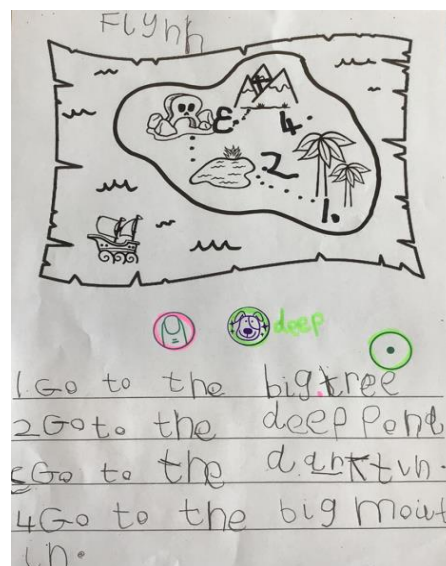 Flynn
3.
4.
2
1.
deep
1.Go to the big tree
2Go to the deep pond
3Go to the dark tun.
4Go to the big mout
in.